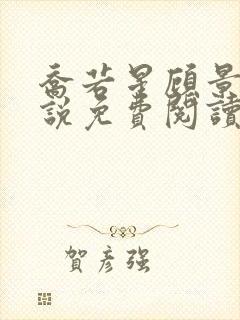 喬若星顧景
說免費閱讀
賀彥強